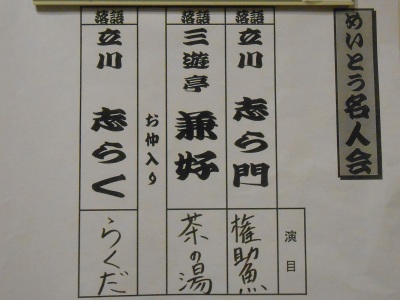 めいとう名人会
演目
落語
立川 志ら門
権助魚
落語
三遊亭 兼好
茶の湯
お仲入り
落語
立川 志らく
らくだ